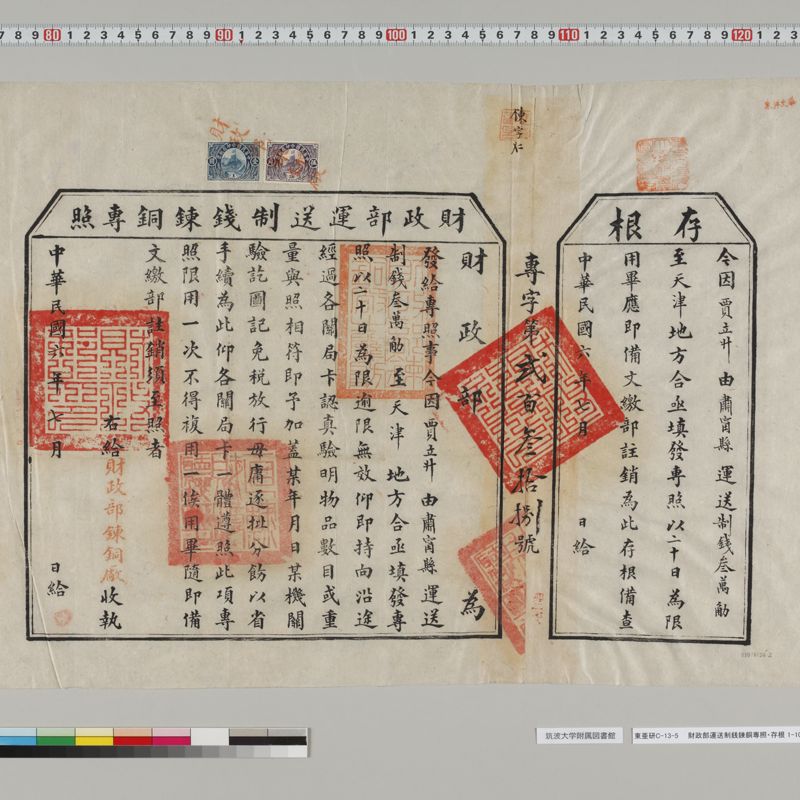 存根
今因賈立廾由肅甯縣運送制錢叁萬觔
至天津地方合亟填發專照以二十日為限
用畢應即備文繳部註銷為此存根備查
中華民國六年七月 日給
專字第貳百叁拾捌號
財政部運送制錢鍊銅專照
財政部為
發給專照事今因賈立廾由肅甯縣運送
制錢叁萬觔至天津地方合亟填發專
照以二十日為限逾限無效仰即持向沿途
經過各關局卡認真驗明物品數目或重
量與照相符即予加蓋某年月日某機關
驗訖圖記免稅放行毋庸逐批分飭以省
手續為此仰各關局卡一體遵照此項專
照限用一次不得複用一俟用畢隨即備
文繳部註銷須至照者
右給財政部鍊銅廠收執
中華民國六年七月 日給
筑波大学附属図書館
東亜研C-13-5 財政部運送制銭鍊銅専照・存根 1-10